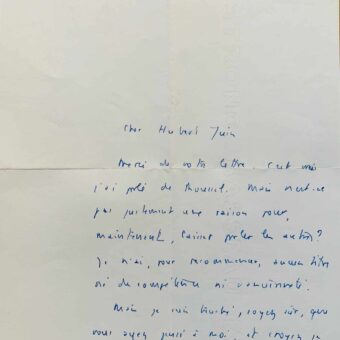 Cher Hubert Juin
Merci de votre lettre. C'est vrai
j'ai parlé de Roussel. Mais n'est-ce
pas justement une raison pour,
maintenant, laisser parler les autres?
Je n'ai, pour recommencer, aucun titre
ni de compétence ni d'
Mais je suis touché, soyez sûr, que
vous ayez pensé à moi, et croyez je